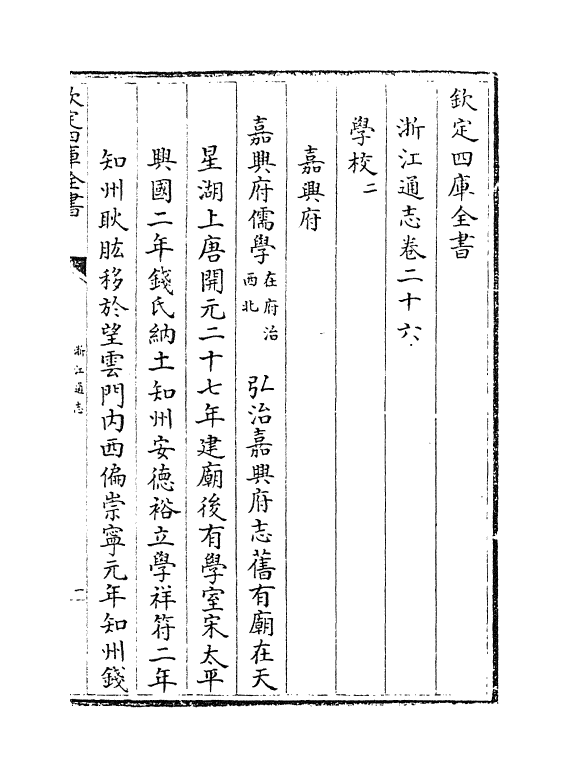 欽定四庫全書
浙江通志卷二十六
學校二
嘉興府
嘉興府儒學在府治西北 弘治嘉興府志舊有廟在天
星湖上唐開元二十七年建廟後有學室宋太平
興國二年錢氏納土知州安德裕立學祥符二年
知州耿肱移於望雲門内西偏崇寧元年知州錢
欽定四庫全書
浙江通志